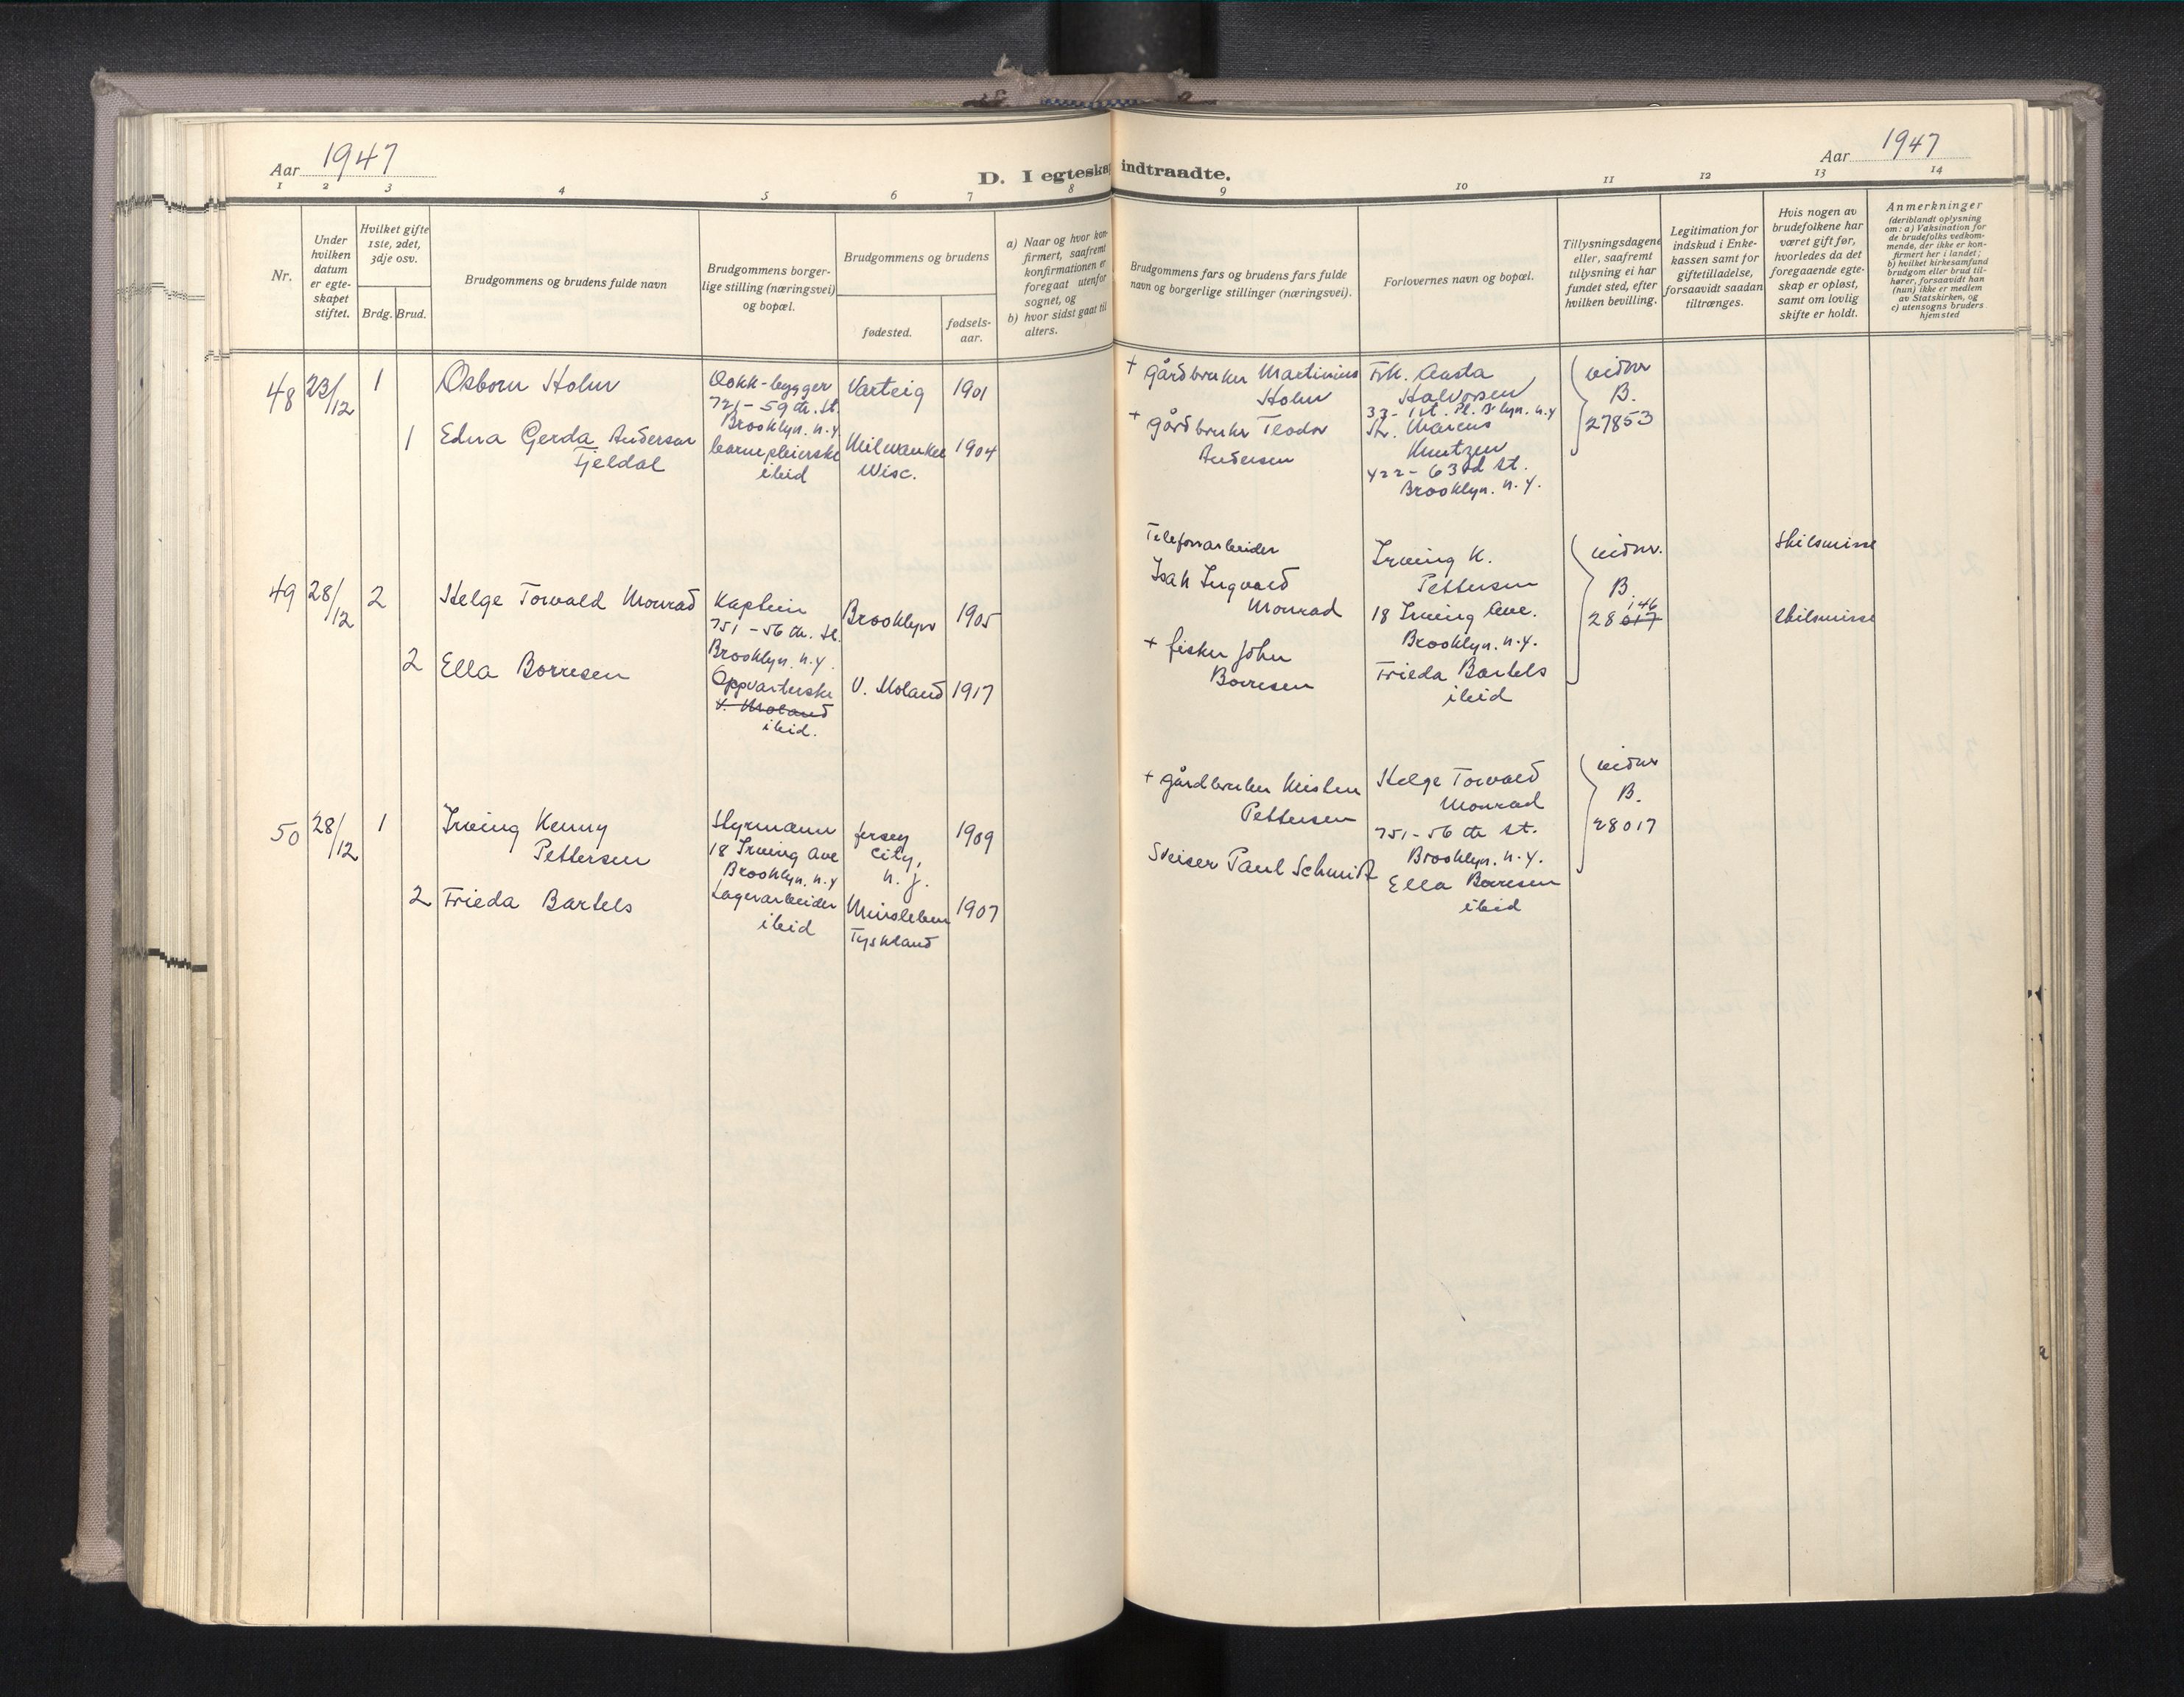 Aar 1947
D. I egteskap indtraadte.
Aar 1947
1 2 3 4 5 6 7 8 9 10 11 12 13 14
Nr.
Under
hvilken
datum
er egte-
skapet
stiftet.
Hvilket gifte
1ste, 2det,
3dje osv.
Brdg. Brud.
Brudgommens og brudens fulde navn
Brudgommens borger-
lige stilling (næringsvei)
og bopæl.
Brudgommens og brudens
fødested.
fødsels-
aar.
a) Naar og hvor kon-
firmert, saafremt
konfirmationen er
foregaat utenfor
sognet, og
b) hvor sidst gaat til
alters.
Brudgommens fars og brudens fars fulde
navn og borgerlige stillinger (næringsvei).
Forlovernes navn og bopæl.
Tillysningsdagene
eller, saafremt
tillysning ei har
fundet sted, efter
hvilken bevilling.
Legitimation for
indskud i Enke-
kassen samt for
giftetilladelse,
forsaavidt saadan
tiltrænges.
Hvis nogen av
brudefolkene har
været gift før,
hvorledes da det
foregaaende egte-
skap er opløst,
samt om lovlig
skifte er holdt.
Anmerkninger
(deriblandt oplysning
om: a) Vaksination for
de brudefolks vedkom-
mende, der ikke er kon-
firmert her i landet;
b) hvilket kirkesamfund
brudgom eller brud til-
hører, forsaavidt han
(hun) ikke er medlem
av Statskirken, og
c) utensogns bruders
hjemsted
48
23/12
1
Osborn Holm
Dokk-bygger
721 - 59 th. St.
Brooklyn. N.Y
Varteig
1901
+ gårdbruker Martinius
Holm
Frk. Aasta
Halvorsen
33 - 1st. Pl. B'lyn. N.Y
vidner
B.
27853
1
Edna Gerda Andersen
Fjeldal
barnepleierske
ibid
Milwaukee
Wisc.
1904
+ gårdbruker Teodor
Andersen
Hr. Marcus
Knutzen
422 - 63rd St.
Brooklyn. N.Y.
49
28/12
2
Helge Torvald Monrad
Kaptein
751 - 56 th. St.
Brooklyn. N.Y.
Brooklyn
1905
Telefonarbeider
Isak Ingvald
Monrad
Irving K.
Pettersen
18 Irving Ave.
Brooklyn. N.Y.
vidner.
B.
146
28017
skilsmisse
skilsmisse
2
Ella Borresen
Oppvarterske
V. Moland
ibid.
V. Moland
1917
+ fisker John
Borresen
Frieda Bartels
ibid
50
28/12
1
Irving Kenny
Pettersen
Styrmann
18 Irving Ave
Brooklyn. N.Y
Jersey
City,
N. J.
1909
+ gårdbruker
Pettersen
Helge Torvald
Monrad
751 - 56 th St.
Brooklyn. N.Y.
vidner
B.
28017
2
Frieda Bartels
Lagerarbeider
ibid
Minsleben
Tyskland
1907
Sveiser Paul Schmidt
Ella Borresen
ibid